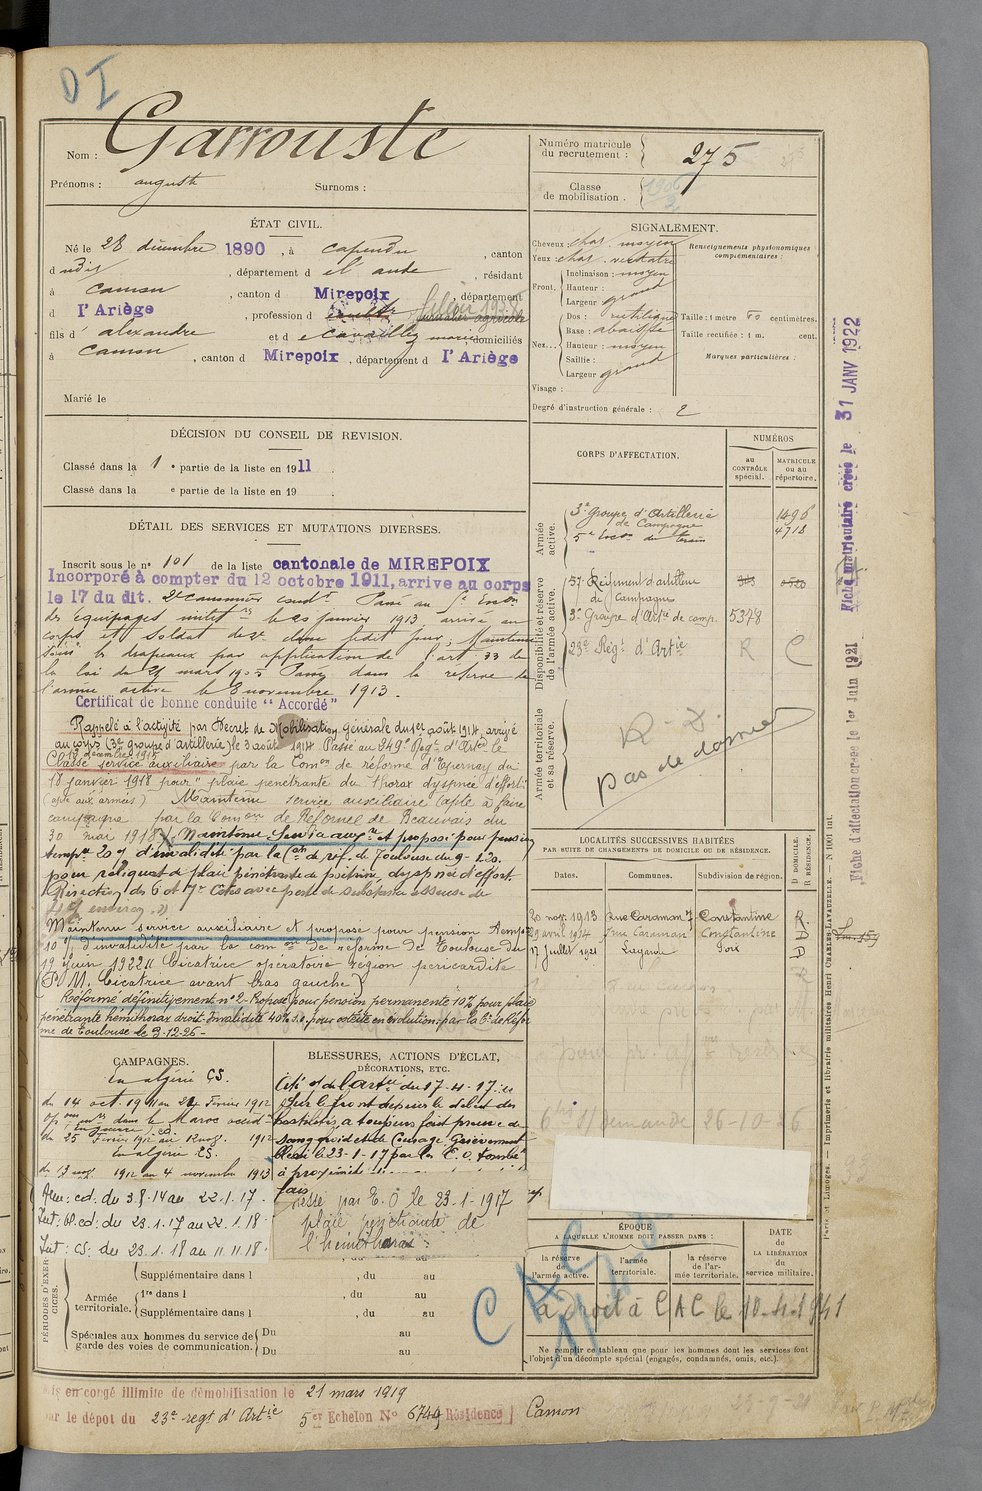 D I
Nom : Garrouste
Prénoms : auguste Surnoms :
Numéro matricule du recrutement : 275
Classe de mobilisation .
ÉTAT CIVIL.
Né le 28 décembre 1890, à Capendu, canton
d udis, département d el aude, résidant
à Camon, canton d Mirepoix, département
d l'Ariège, profession d
fils d' alexandre et d domiciliés
à Camon, canton d Mirepoix, département d l'Ariège
Marié le
SIGNALEMENT.
Cheveux : chat. moyen
Yeux : chat.
Front. Inclinaison : moyen
Hauteur :
Largeur : grand
Nez... Dos : rectiligne
Base : abaissée
Hauteur : moyen
Saillie :
Largeur : grand
Visage :
Renseignements physionomiques complémentaires :
Taille : 1 mètre 60 centimètres.
Taille rectifiée : 1 m. cent.
Marques particulières :
Degré d'instruction générale : 2
DÉCISION DU CONSEIL DE REVISION.
Classé dans la 1 e partie de la liste en 1911.
Classé dans la e partie de la liste en 19 .
DÉTAIL DES SERVICES ET MUTATIONS DIVERSES.
Inscrit sous le n° 101 de la liste cantonale de MIREPOIX
Incorporé à compter du 12 octobre 1911, arrive au corps
le 17 du dit. 2e canonnier condr. Passé au 5e Escon
des équipages militres le 25 janvier 1913, arrive au
corps et soldat de 2e classe le dit jour. Maintenu
sous les drapeaux par application de l'art. 33 de
la loi de 21 mars 1905 Passé dans la réserve de
l'armée active le 8 novembre 1913.
Certificat de bonne conduite "Accordé"
Rappelé à l'activité par Décret de Mobilisation Générale du 1er août 1914 arrivé
au corps (3e groupe d'artillerie) le 3 août 1914 Passé au 249e Régt d'Artie le
Classé service auxiliaire par la Comon de réforme d'Epernay du
18 janvier 1918 pour "plaie pénétrante du thorax dyspnée d'effort"
(apte aux armées) Maintenu service auxiliaire (apte à faire
campagne par la Comon de Réforme de Beauvais du
30 mai 1918. Maintenu Service auxre et proposé pour pension
tempre 20% d'invalidité par la Con de réf. de Toulouse du 9-1-20.
pour reliquat de plaie pénétrante de poitrine, dyspnée d'effort.
Résection des 6 et 7e Côtes avec perte de substance osseuse de
Maintenu service auxiliaire et proposé pour pension tempre
10% d'invalidité par la comon de réforme de Toulouse du
19 Juin 1922 Cicatrice opératoire région pericardite
P. M. Cicatrice avant bras gauche
Réformé définitivement n°2 - Proposé pour pension permanente 10% pour plaie
pénétrante hémithorax droit. Invalidité 40% pour ostéite en évolution par la Con de Réfor
me de Toulouse le 9-12-25 -
CORPS D'AFFECTATION.
NUMÉROS
au CONTRÔLE spécial.
MATRICULE ou au répertoire.
Armée active.
3e Groupe d'Artillerie de Campagne 1496
5e Escon du train 4718
Disponibilité et réserve de l'armée active.
57e Régiment d'artillerie de campagne
3e Groupe d'Artie de camp. 5378
23e Régt d'Artie R C
Armée territoriale et sa réserve.
R - D.
pas de dossier
LOCALITÉS SUCCESSIVES HABITÉES
PAR SUITE DE CHANGEMENTS DE DOMICILE OU DE RÉSIDENCE.
Dates. Communes. Subdivision de région. D DOMICILE. R RÉSIDENCE.
20 nov. 1913 Rue Caraman 7 Constantine R.
29 avril 1914 rue Caraman Constantine A
17 Juillet 1921 Lagarde Foix A
demande 26-10-26
CAMPAGNES.
En algérie CS.
du 14 oct. 1911 au 24 Février 1912
opons dans le Maroc occid
(En guerre) CD.
du 25 Février 1912 au 1912
En algérie CS.
du 13 1912 au 4 novembre 1913
All : cd. du 3.8.14 au 22.1.17.
Int : Bl. cd : du 23.1.17 au 22.1.18.
Int : CS : du 23.1.18 au 11.11.18.
BLESSURES, ACTIONS D'ÉCLAT, DÉCORATIONS, ETC.
Cité de l'artie du 17-4-17 :
Sur le front depuis le début des
hostilités, a toujours fait preuve de
sang froid et de courage. Grièvement
blessé le 23-1-17 par un E.O. tombé
à proximité
Blessé par E. O le 23-1-1917
plaie pénétrante de
l'hémithorax
PÉRIODES D'EXERCICES.
Supplémentaire dans l , du au
Armée territoriale. 1re dans l , du au
Supplémentaire dans l , du au
Spéciales aux hommes du service de garde des voies de communication. Du au
Du au
ÉPOQUE
A LAQUELLE L'HOMME DOIT PASSER DANS :
la réserve de l'armée active.
l'armée territoriale.
la réserve de l'armée territoriale.
DATE DE LA LIBÉRATION du service militaire.
CAC
a droit à CAC le 10-4-1941
Ne remplir ce tableau que pour les hommes dont les services font
l'objet d'un décompte spécial (engagés, condamnés, omis, etc.).
Mis en congé illimité de démobilisation le 21 mars 1919
par le dépôt du 23e regt d'Artie 5er Echelon N° 6744 Résidence Camon
Fiche matriculaire créée le 31 JANV 1922
Fiche d'affectation créée le 1er Juin 1921
Paris et Limoges. — Imprimerie et librairie militaires Henri CHARLES-LAVAUZELLE. — N 1001 int.